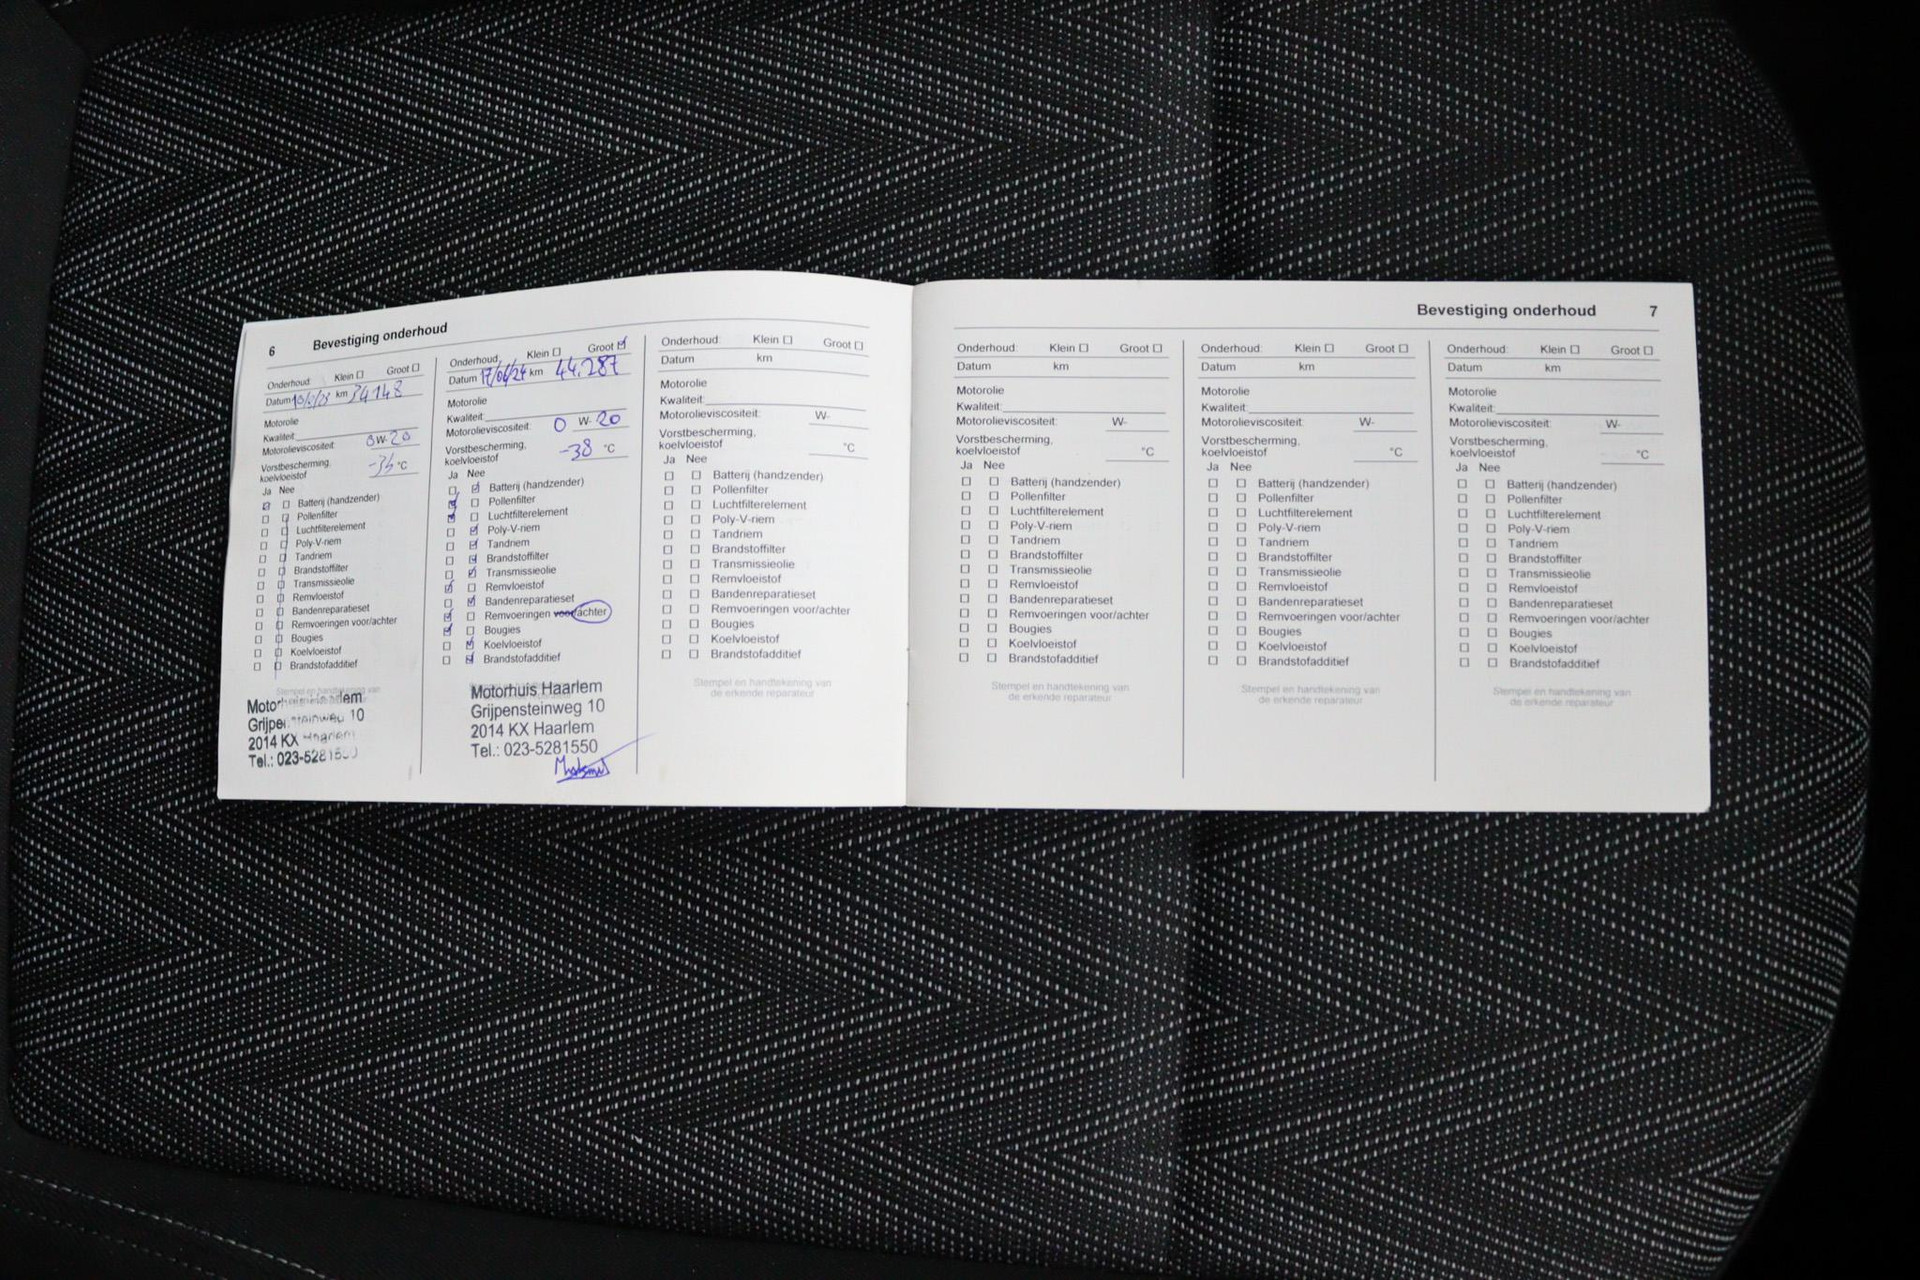 6 Bevestiging onderhoud
Onderhoud: Klein ☐ Groot ☐
Datum km 34148
Motorolie
Kwaliteit:
Motorolieviscositeit: 0 W- 20
Vorstbescherming,
koelvloeistof °C
Ja Nee
Batterij (handzender)
Pollenfilter
Luchtfilterelement
Poly-V-riem
Tandriem
Brandstoffilter
Transmissieolie
Remvloeistof
Bandenreparatieset
Remvoeringen voor/achter
Bougies
Koelvloeistof
Brandstofadditief
Stempel en handtekening van
Grijpensteinweg 10
2014 KX Haarlem
Tel.: 023-5281550
Onderhoud: Klein ☐ Groot ☑
Datum 17/06/24 km 44.287
Motorolie
Kwaliteit:
Motorolieviscositeit: 0 W- 20
Vorstbescherming,
koelvloeistof -38 °C
Ja Nee
Batterij (handzender)
Pollenfilter
Luchtfilterelement
Poly-V-riem
Tandriem
Brandstoffilter
Transmissieolie
Remvloeistof
Bandenreparatieset
Remvoeringen voor/achter
Bougies
Koelvloeistof
Brandstofadditief
Motorhuis Haarlem
Grijpensteinweg 10
2014 KX Haarlem
Tel.: 023-5281550
Onderhoud: Klein ☐ Groot ☐
Datum km
Motorolie
Kwaliteit:
Motorolieviscositeit: W-
Vorstbescherming,
koelvloeistof °C
Ja Nee
Batterij (handzender)
Pollenfilter
Luchtfilterelement
Poly-V-riem
Tandriem
Brandstoffilter
Transmissieolie
Remvloeistof
Bandenreparatieset
Remvoeringen voor/achter
Bougies
Koelvloeistof
Brandstofadditief
Stempel en handtekening van
de erkende reparateur
Bevestiging onderhoud 7
Onderhoud: Klein ☐ Groot ☐
Datum km
Motorolie
Kwaliteit:
Motorolieviscositeit: W-
Vorstbescherming,
koelvloeistof °C
Ja Nee
Batterij (handzender)
Pollenfilter
Luchtfilterelement
Poly-V-riem
Tandriem
Brandstoffilter
Transmissieolie
Remvloeistof
Bandenreparatieset
Remvoeringen voor/achter
Bougies
Koelvloeistof
Brandstofadditief
Stempel en handtekening van
de erkende reparateur
Onderhoud: Klein ☐ Groot ☐
Datum km
Motorolie
Kwaliteit:
Motorolieviscositeit: W-
Vorstbescherming,
koelvloeistof °C
Ja Nee
Batterij (handzender)
Pollenfilter
Luchtfilterelement
Poly-V-riem
Tandriem
Brandstoffilter
Transmissieolie
Remvloeistof
Bandenreparatieset
Remvoeringen voor/achter
Bougies
Koelvloeistof
Brandstofadditief
Stempel en handtekening van
de erkende reparateur
Onderhoud: Klein ☐ Groot ☐
Datum km
Motorolie
Kwaliteit:
Motorolieviscositeit: W-
Vorstbescherming,
koelvloeistof °C
Ja Nee
Batterij (handzender)
Pollenfilter
Luchtfilterelement
Poly-V-riem
Tandriem
Brandstoffilter
Transmissieolie
Remvloeistof
Bandenreparatieset
Remvoeringen voor/achter
Bougies
Koelvloeistof
Brandstofadditief
Stempel en handtekening van
de erkende reparateur